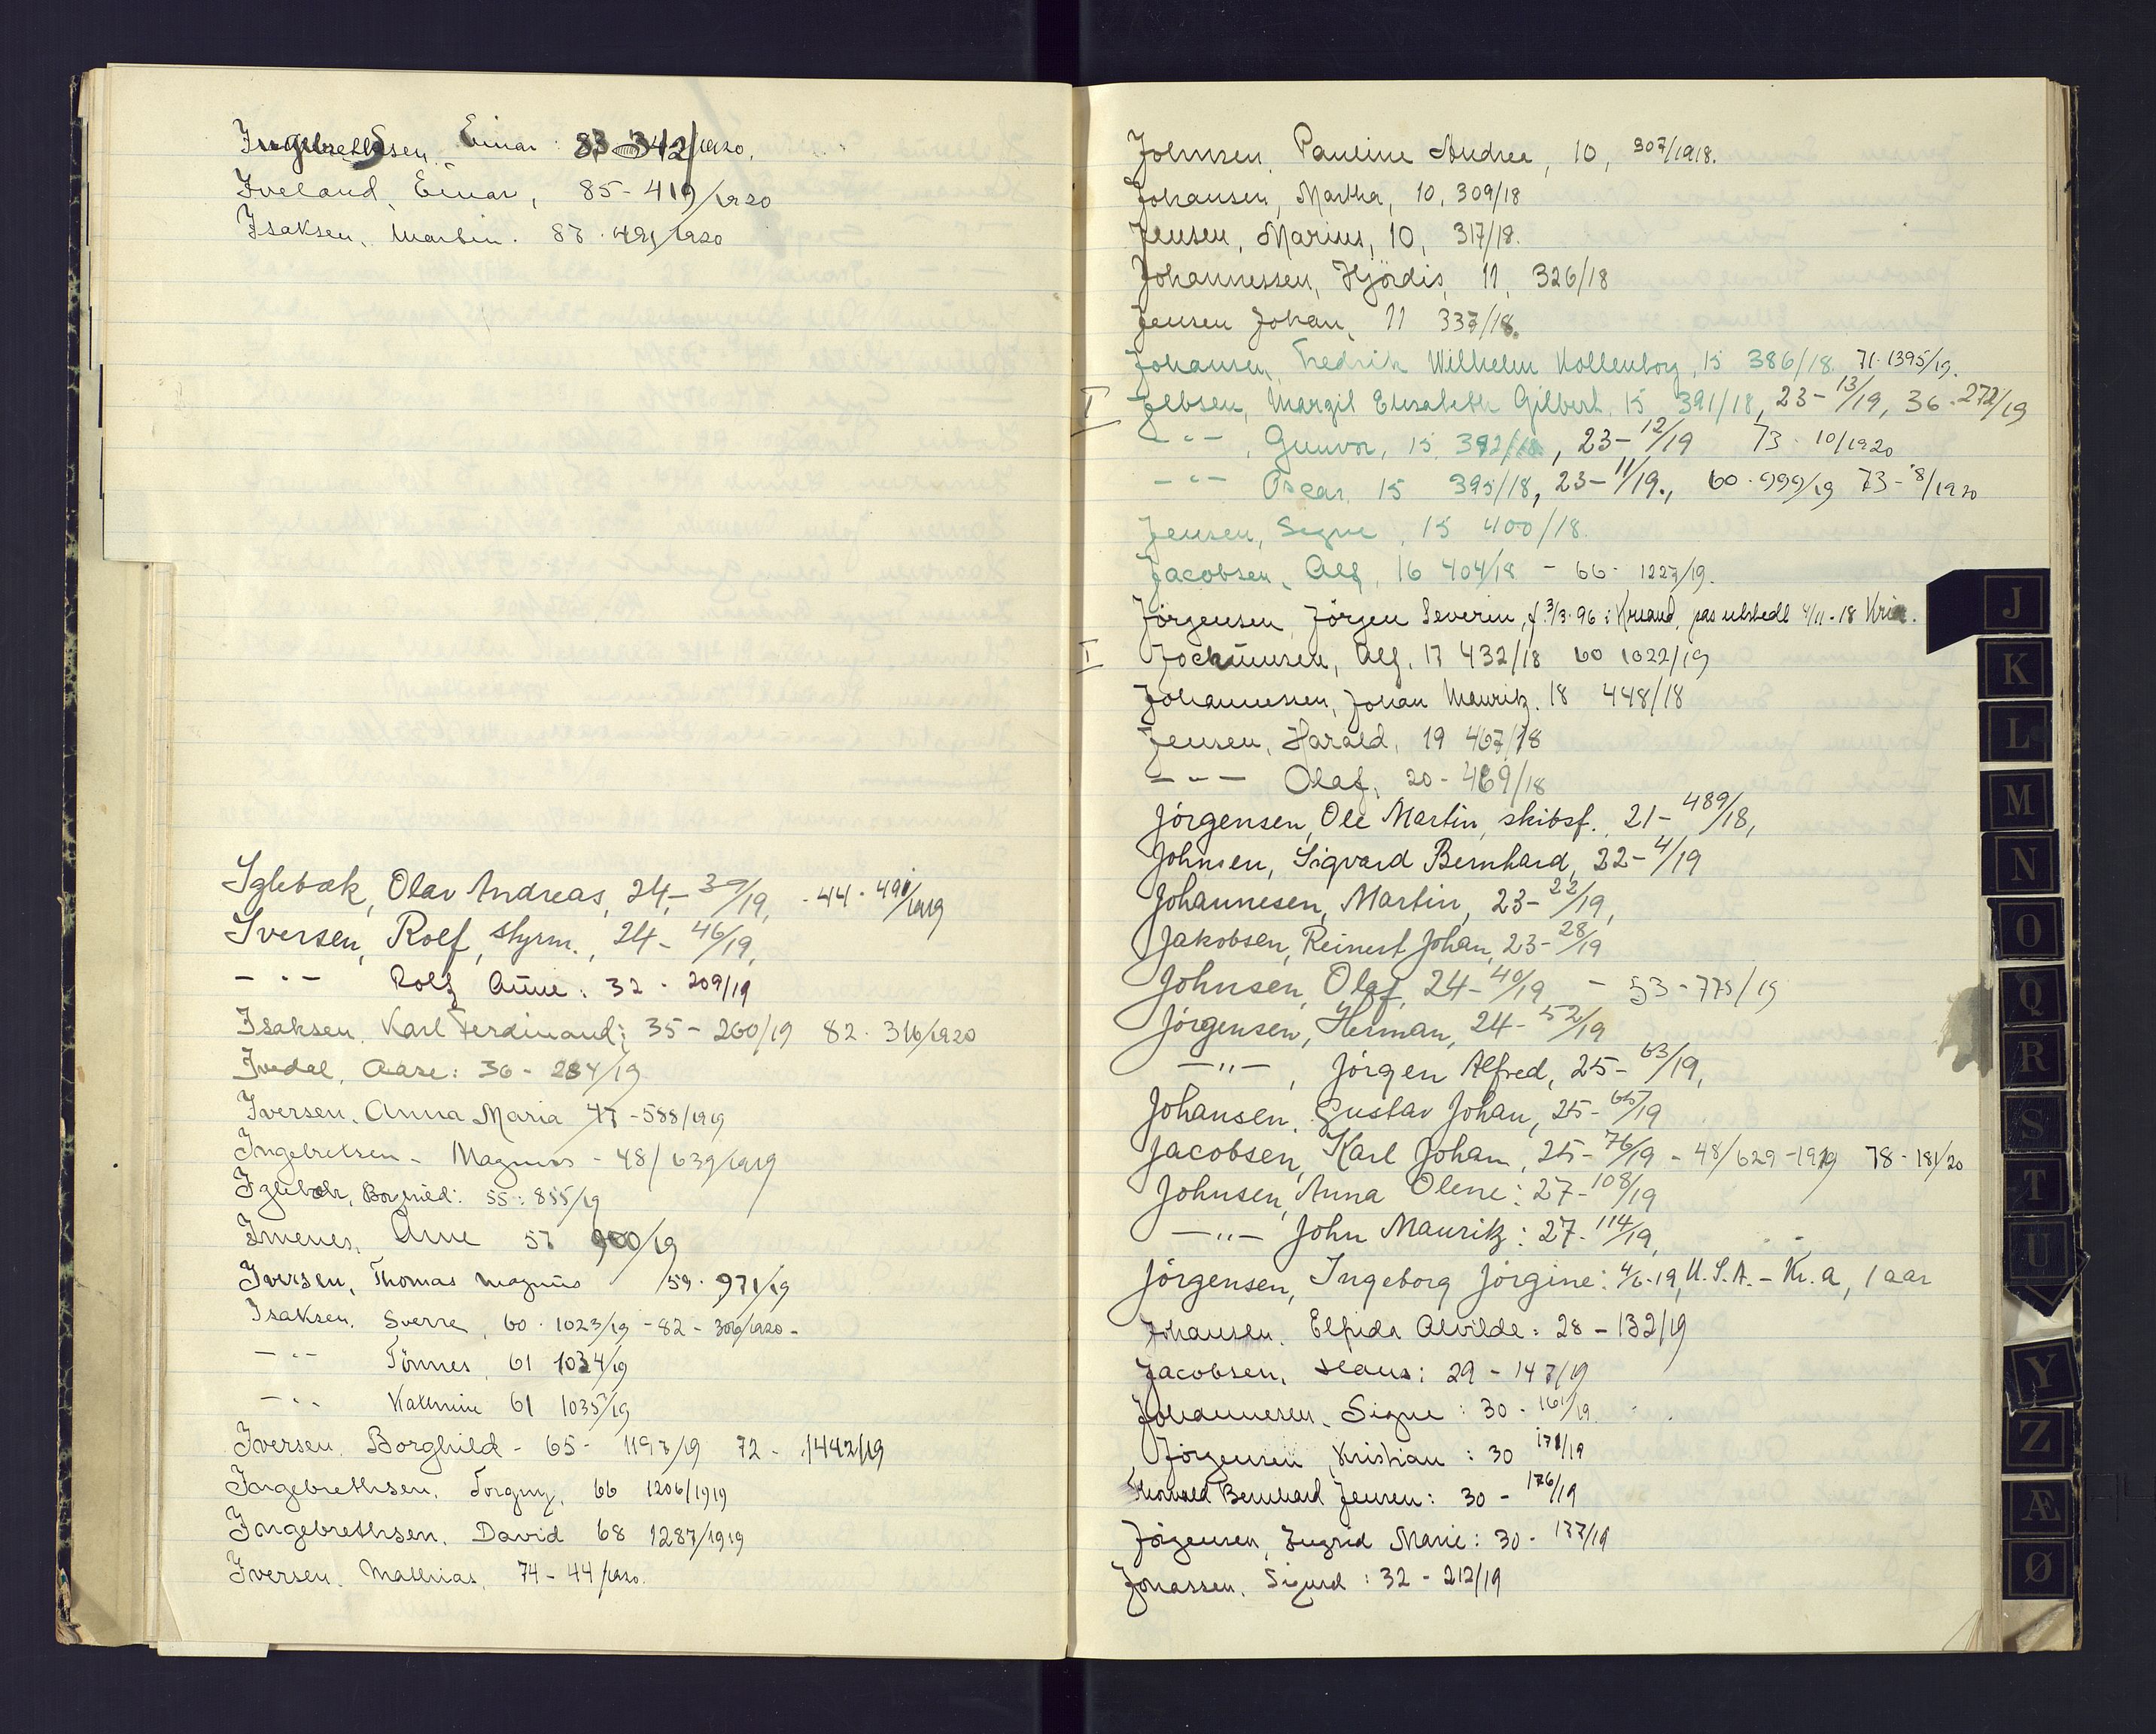 Ingebrethsen Einar : 83 342/1920.
Iveland, Einar, 85 - 419/1920
Isaksen, Martin. 87 . 491/1920
Iglebæk, Olav Andreas, 24 - 39/19, - 44 - 491/1919
Iversen, Rolf, styrm., 24 - 46/19,
- " - Rolf Arne : 32 - 209/19
Isaksen, Karl Ferdinand; 35 - 260/19 82 - 316/1920
Ivedal, Aase : 36 - 284/19
Iversen, Anna Maria 47 - 588/1919
Ingebretsen - Magnus - 48/639/1919
Borghild : 55 : 855/19
Imenes, Arne 57 900/19
Iversen, Thomas Magnus 59 - 971/19
Isaksen, Sverre, 60 . 1023/19 - 82 - 306/1920 -
- " - Tönnes, 61 1034/19
- " - Kathrine 61 1035/19
Iversen, Borghild - 65 - 1197/19 72 - 1442/19
Ingebrethsen, Torgny, 66 1206/1919
Ingebrethsen, David 68 1287/1919
Iversen, Mathias, 74 - 44/1920.
Johnsen, Pauline Andrea, 10, 307/1918.
Johansen, Martha, 10, 309/18
Jensen, Marius, 10, 317/18.
Johannessen, Hjördis, 11, 326/18
Jensen Johan, 11 337/18.
Johansen, Fredrik Wilhelm Kollenborg, 15 386/18. 71 - 1395/19.
I Jebsen, Margit Elisabeth Gilbert, 15 391/18, 23 - 13/19, 36 - 272/19
- " - , Gunvor, 15, 392/18, 23 - 12/19 73 - 10/1920
- " - Oscar, 15 395/18, 23 - 11/19., 60 - 999/19 73 - 8/1920
Jensen, Signe, 15 400/18.
Jacobsen, Alf, 16 404/18 - 66 - 1227/19.
Jörgensen, Jörgen Severin, f. 3/3-96 i Krsand, pas utstedt 4/11-18
I Jochumsen, Alf, 17 432/18 60 1022/19
Johannessen, Johan Mauritz, 18 448/18
Jensen, Harald, 19 467/18
- " - Olaf, 20 - 469/18
Jörgensen, Ole Martin, skibsf., 21 - 489/18,
Johnsen, Sigvard Bernhard, 22 - 4/19
Johannesen, Martin, 23 - 22/19,
Jakobsen, Reinert Johan, 23 - 28/19
Johnsen, Olaf, 24 - 40/19 - 53 - 775/19
Jörgensen, Herman, 24 - 52/19
- " - , Jörgen Alfred, 25 - 63/19,
Johansen, Gustav Johan, 25 - 65/19
Jacobsen, Karl Johan, 25 - 76/19 - 48/629 - 1919 78 - 181/20
Johnsen, Anna Olene : 27 - 108/19
- " - John Mauritz : 27 - 114/19,
Jörgensen, Ingeborg Jörgine : 4/6-19, U.S.A. - Kr.a, 1 aar
Johansen, Elfrida Alvilde : 28 - 132/19
Jacobsen, Hans : 29 - 147/19
Johannesen, Signe : 30 - 161/19
Jörgensen, Kristian : 30 171/19
Thorvald Bernhard Jensen : 30 - 176/19
Jörgensen, Ingrid Marie : 30 - 177/19
Jonassen, Sigurd : 32 - 212/19
J
K
L
M
N
O
Q
R
S
T
U
Y
Z
Æ
Ø